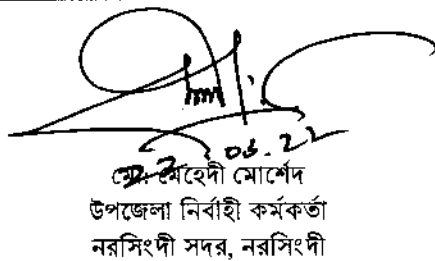 03.22
মোঃ মেহেদী মোর্শেদ
উপজেলা নির্বাহী কর্মকর্তা
নরসিংদী সদর, নরসিংদী